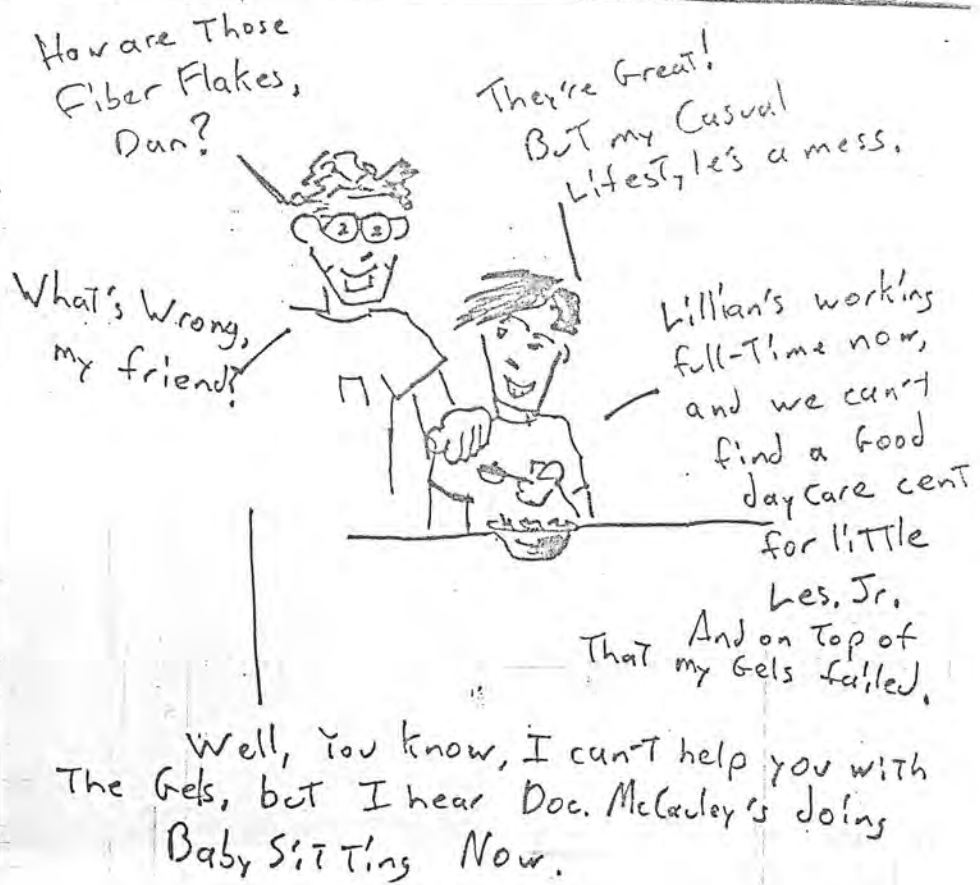 How are Those
Fiber Flakes,
Dan?
They're Great!
But my Casual
Lifestyle's a mess.
What's Wrong,
my friend?
Lillian's working
full-Time now,
and we can't
find a Good
daycare cent
for little
Les, Jr.
And on Top of
That my Gels failed.
Well, You know, I can't help you with
The Gels, but I hear Doc. McCauley's doing
Baby Sitting Now.